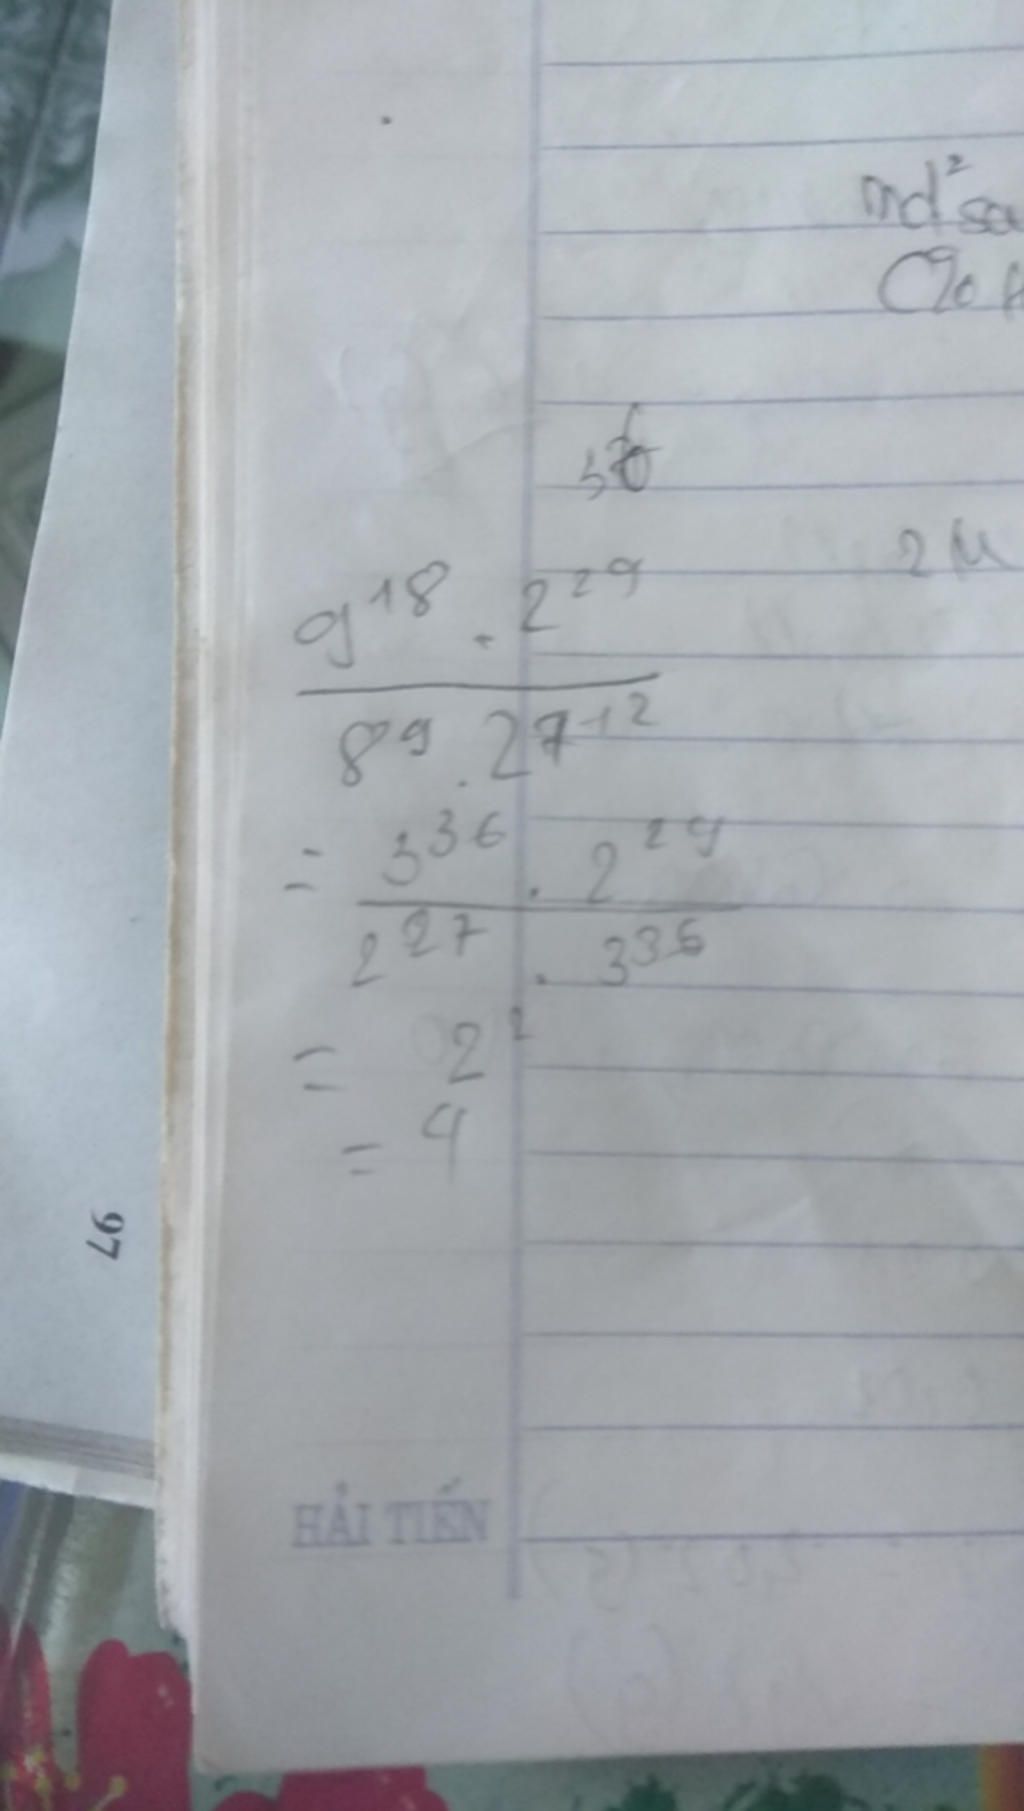 md² sa
C%
9¹⁸ . 2²⁹
8⁹ . 27¹²
= 3³⁶ . 2²⁹
2²⁷ . 3³⁶
= 2²
= 4
97
HẢI TIẾN